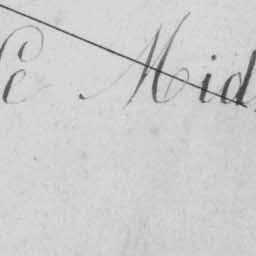 Le Mid